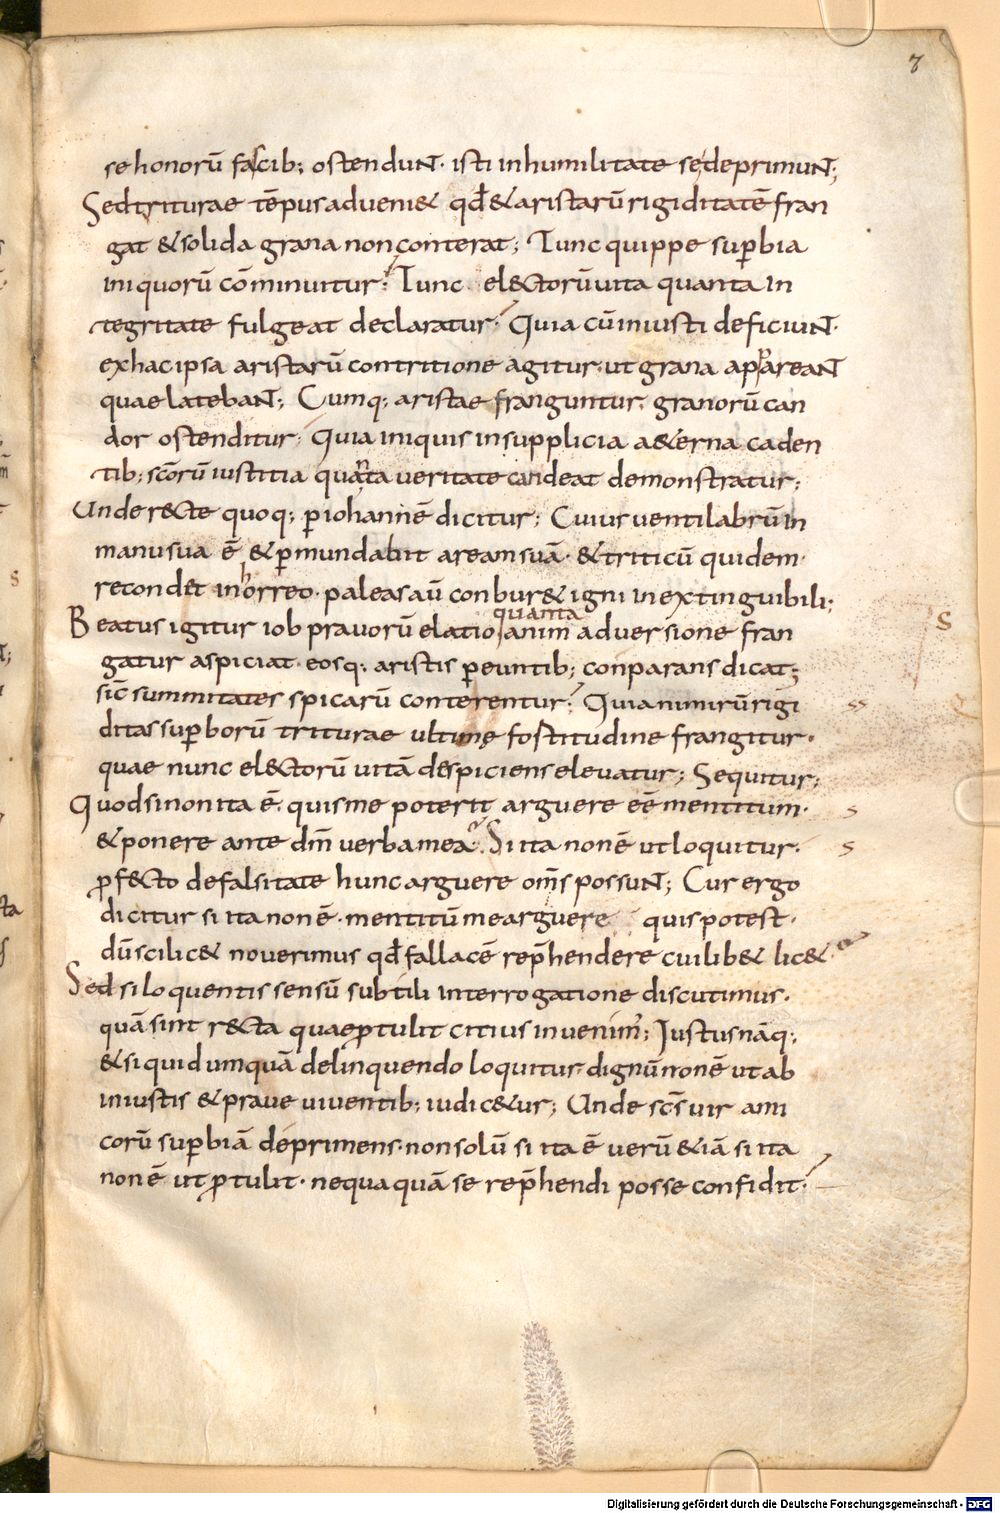 7
se honorū fascib; ostendunt· isti in humilitate se deprimunt;
Sed triturae tēpus adueni& qd̄ & aristarū rigiditatē fran
gat & solida grana non conterat; Tunc quippe sup̄bia
iniquorū cōminuitur; Tunc electorū uita quanta in
tegritate fulgeat declaratur; Quia cū iniusti deficiunt·
ex hac ipsa aristarū contritione agitur· ut grana appareant
quae latebant; Cumq; aristae franguntur· granorū can
dor ostenditur; Quia iniquis in supplicia a&erna caden
tib; sc̄orū iustitia quanta ueritate candeat demonstratur;
Unde recte quoq; p̄ iohannē dicitur; Cuius uentilabrū in
manu sua ē & p̄mundabit aream suā· & triticū quidem·
recondet in horreo· paleas aū conbur& igni inextinguibili;
quanta
Beatus igitur iob prauorū elatio anim aduersione fran
gatur aspiciat· eosq; aristis p̄euntib; conparans dicat;
S
sic̄ summitates spicarū conterentur; Quia nimirū rigi
ss
ditas sup̄borū triturae ultimę fostitudine frangitur·
quae nunc electorū uitā despiciens eleuatur; Sequitur;
Quod si non ita ē· quis me poterit arguere eē mentitum·
s
& ponere ante dm̄ uerba mea; Si ita non ē ut loquitur·
s
p̄fecto de falsitate hunc arguere om̄s possunt; Cur ergo
dicitur si ita non ē· mentitū me arguere quis potest·
dū scilic& nouerimus qd̄ fallacē rep̄hendere cuilib& lic&·
Sed si loquentis sensū subtili interrogatione discutimus·
quā sint recta quae p̄tulit citius inuenim'; Iustus nāq;
& si quid umquā delinquendo loquitur· dignū non ē ut ab
iniustis & praue uiuentib; iudic&ur; Unde sc̄s uir ami
corū sup̄biā deprimens· non solū si ita ē uerū &iā si ita
non ē ut p̄tulit· nequaquā se rep̄hendi posse confidit·
Digitalisierung gefördert durch die Deutsche Forschungsgemeinschaft - DFG